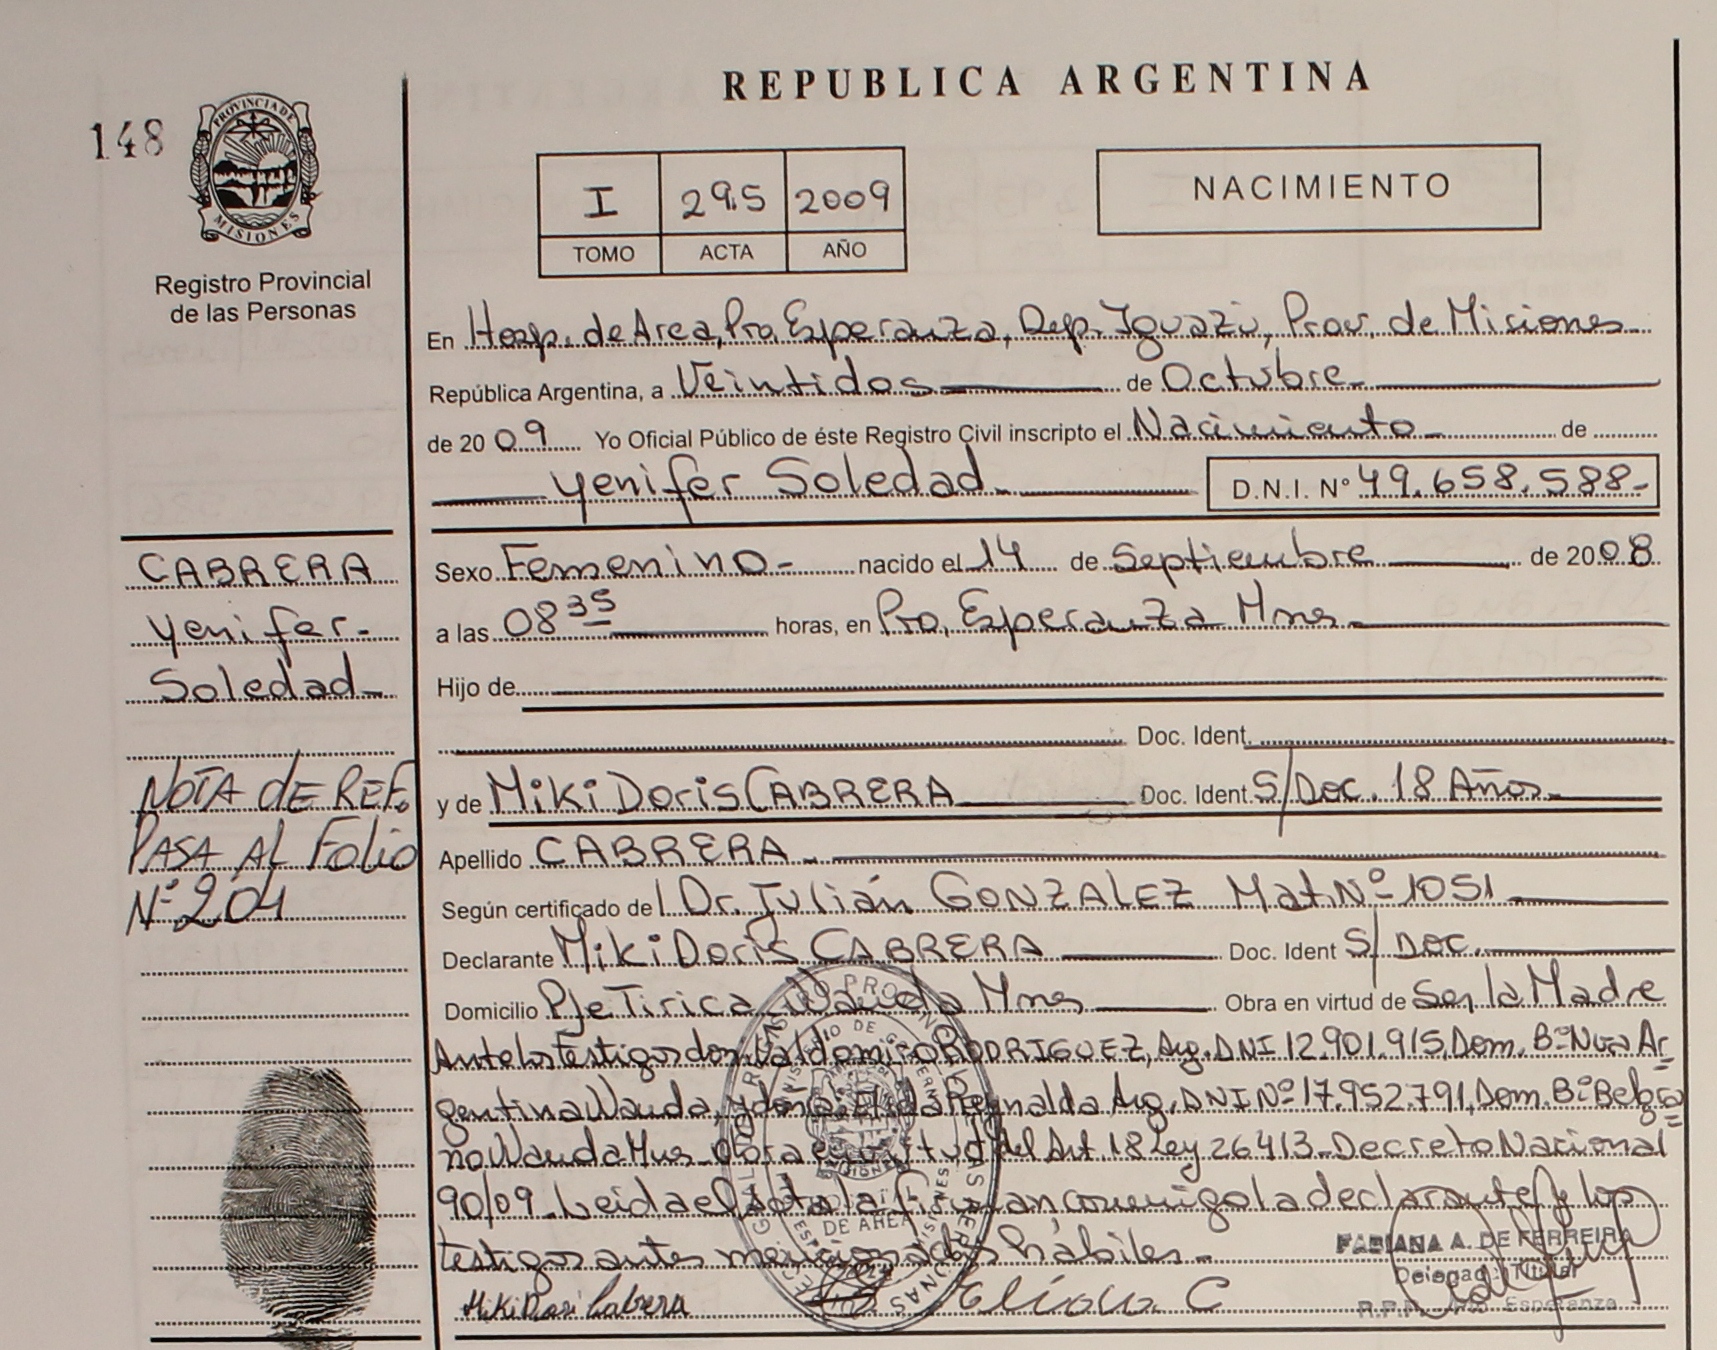 REPUBLICA ARGENTINA
148
PROVINCIA DE
MISIONES
Registro Provincial
de las Personas
I 295 2009
TOMO ACTA AÑO
NACIMIENTO
En Hosp. de Area, Pto, Esperanza, Dep. Iguazú, Prov. de Misiones
República Argentina, a Veintidos de Octubre
de 2009 Yo Oficial Público de éste Registro Civil inscripto el Nacimiento de
Yenifer Soledad D.N.I. N° 49.658.588-
CABRERA
Yenifer-
Soledad
NOTA de REF.
PASA AL Folio
N° 204
Sexo Femenino - nacido el 14 de Septiembre de 2008
a las 08 35 horas, en Pto, Esperanza Mnes
Hijo de
Doc. Ident.
y de Miki Doris CABRERA Doc. Ident. S/Doc. 18 Años
Apellido CABRERA
Según certificado del Dr. Julián GONZALEZ Mat. Nº 1051
Declarante Miki Doris CABRERA Doc. Ident S/ Doc.
Domicilio Pje Tirica Wanda Mnes Obra en virtud de Ser la Madre
Ante los testigos don Valdomiro RODRIGUEZ, Arg. DNI 12.901.915, Dom. Bº Nva Ar
gentina Wanda, y doña Elida Reynalda Arg. DNI Nº 17.952.791, Dom. Bº Belgra
no Wanda Mnes Obra en virtud del Art. 18 Ley 26413 - Decreto Nacional
90/09 - Leida el Acta la firman conmigo la declarante y los
testigos antes mencionados hábiles -
Miki Doris Cabrera
FABIANA A. DE FERREIRA
Delegada Titular
R.P.P. Pto. Esperanza